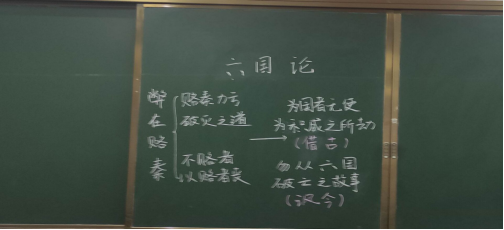 六国论
弊在赂秦
赂秦力亏
破灭之道
不赂者
以赂者丧
为国者无使
为积威之所劫
(借古)
勿从六国
破亡之故事
(讽今)